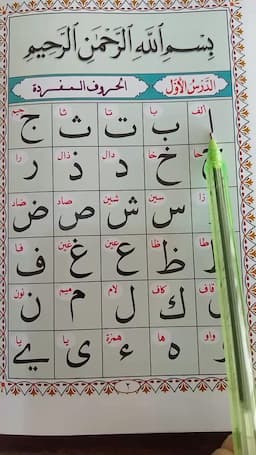 بِسْمِ اللّٰهِ الرَّحْمٰنِ الرَّحِيْمِ
الدَّرْسُ الْأَوَّلُ الحروف المفردة
الف با تا ثا جيم
ا ب ت ث ج
حا خا دال ذال را
خ د ذ ر
زا سين شين صاد ضاد
س ش ص ض
طا ظا عين غين فا
ظ ع غ ف
قاف كاف لام ميم نون
ك ل م ن
واو ها همزة يا يا
ه ء ى ي
٢